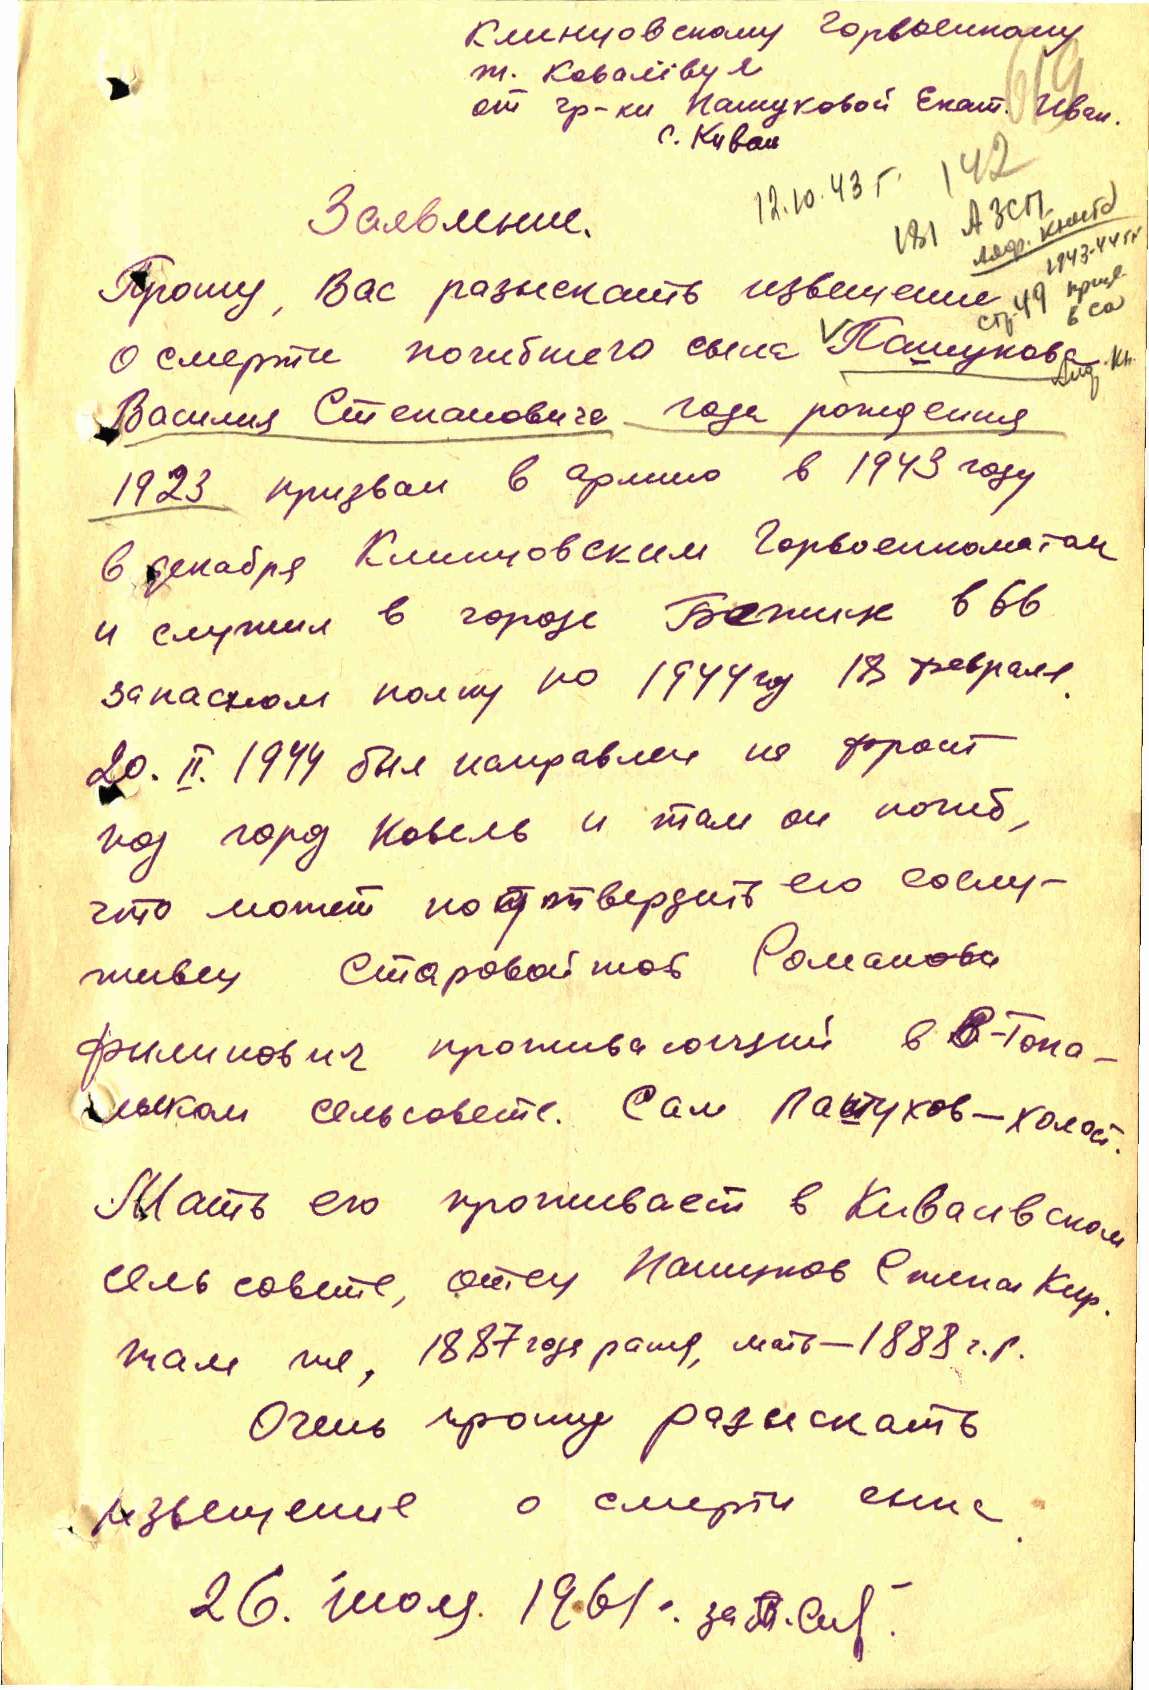 Клинцовскому Горвоенкому
т. Ковалівул
от гр-ки Пашуковой Екат. Иван.
с. Киваи
619
142
12.10.43 г.
181 АЗСП
Алф. книга
1943-44 гг
стр 49
Заявление.
Прошу, Вас разыскать извещение
о смерти погибшего сына Пашукова
Василия Степановича года рождения
1923 призван в армию в 1943 году
в декабря Клинцовским Горвоенкоматом
и служил в городе Бежик в 6в
запасном полку по 1944 год 18 февраля.
20. II. 1944 был направлен на фронт
под город Ковель и там он погиб,
что может подтвердить его сослу-
живец Старовойтов Роман
филипович проживающий в В-Топа-
льском сельсовете. Сам Пашухов – холост.
Мать его проживает в Киваивском
сельсовете, отец Пашуков Степан Кир.
там же, 1887 года рожд, мать – 1888 г.р.
Очень прошу разыскать
извещение о смерти сына.
26. июля. 1961 г.